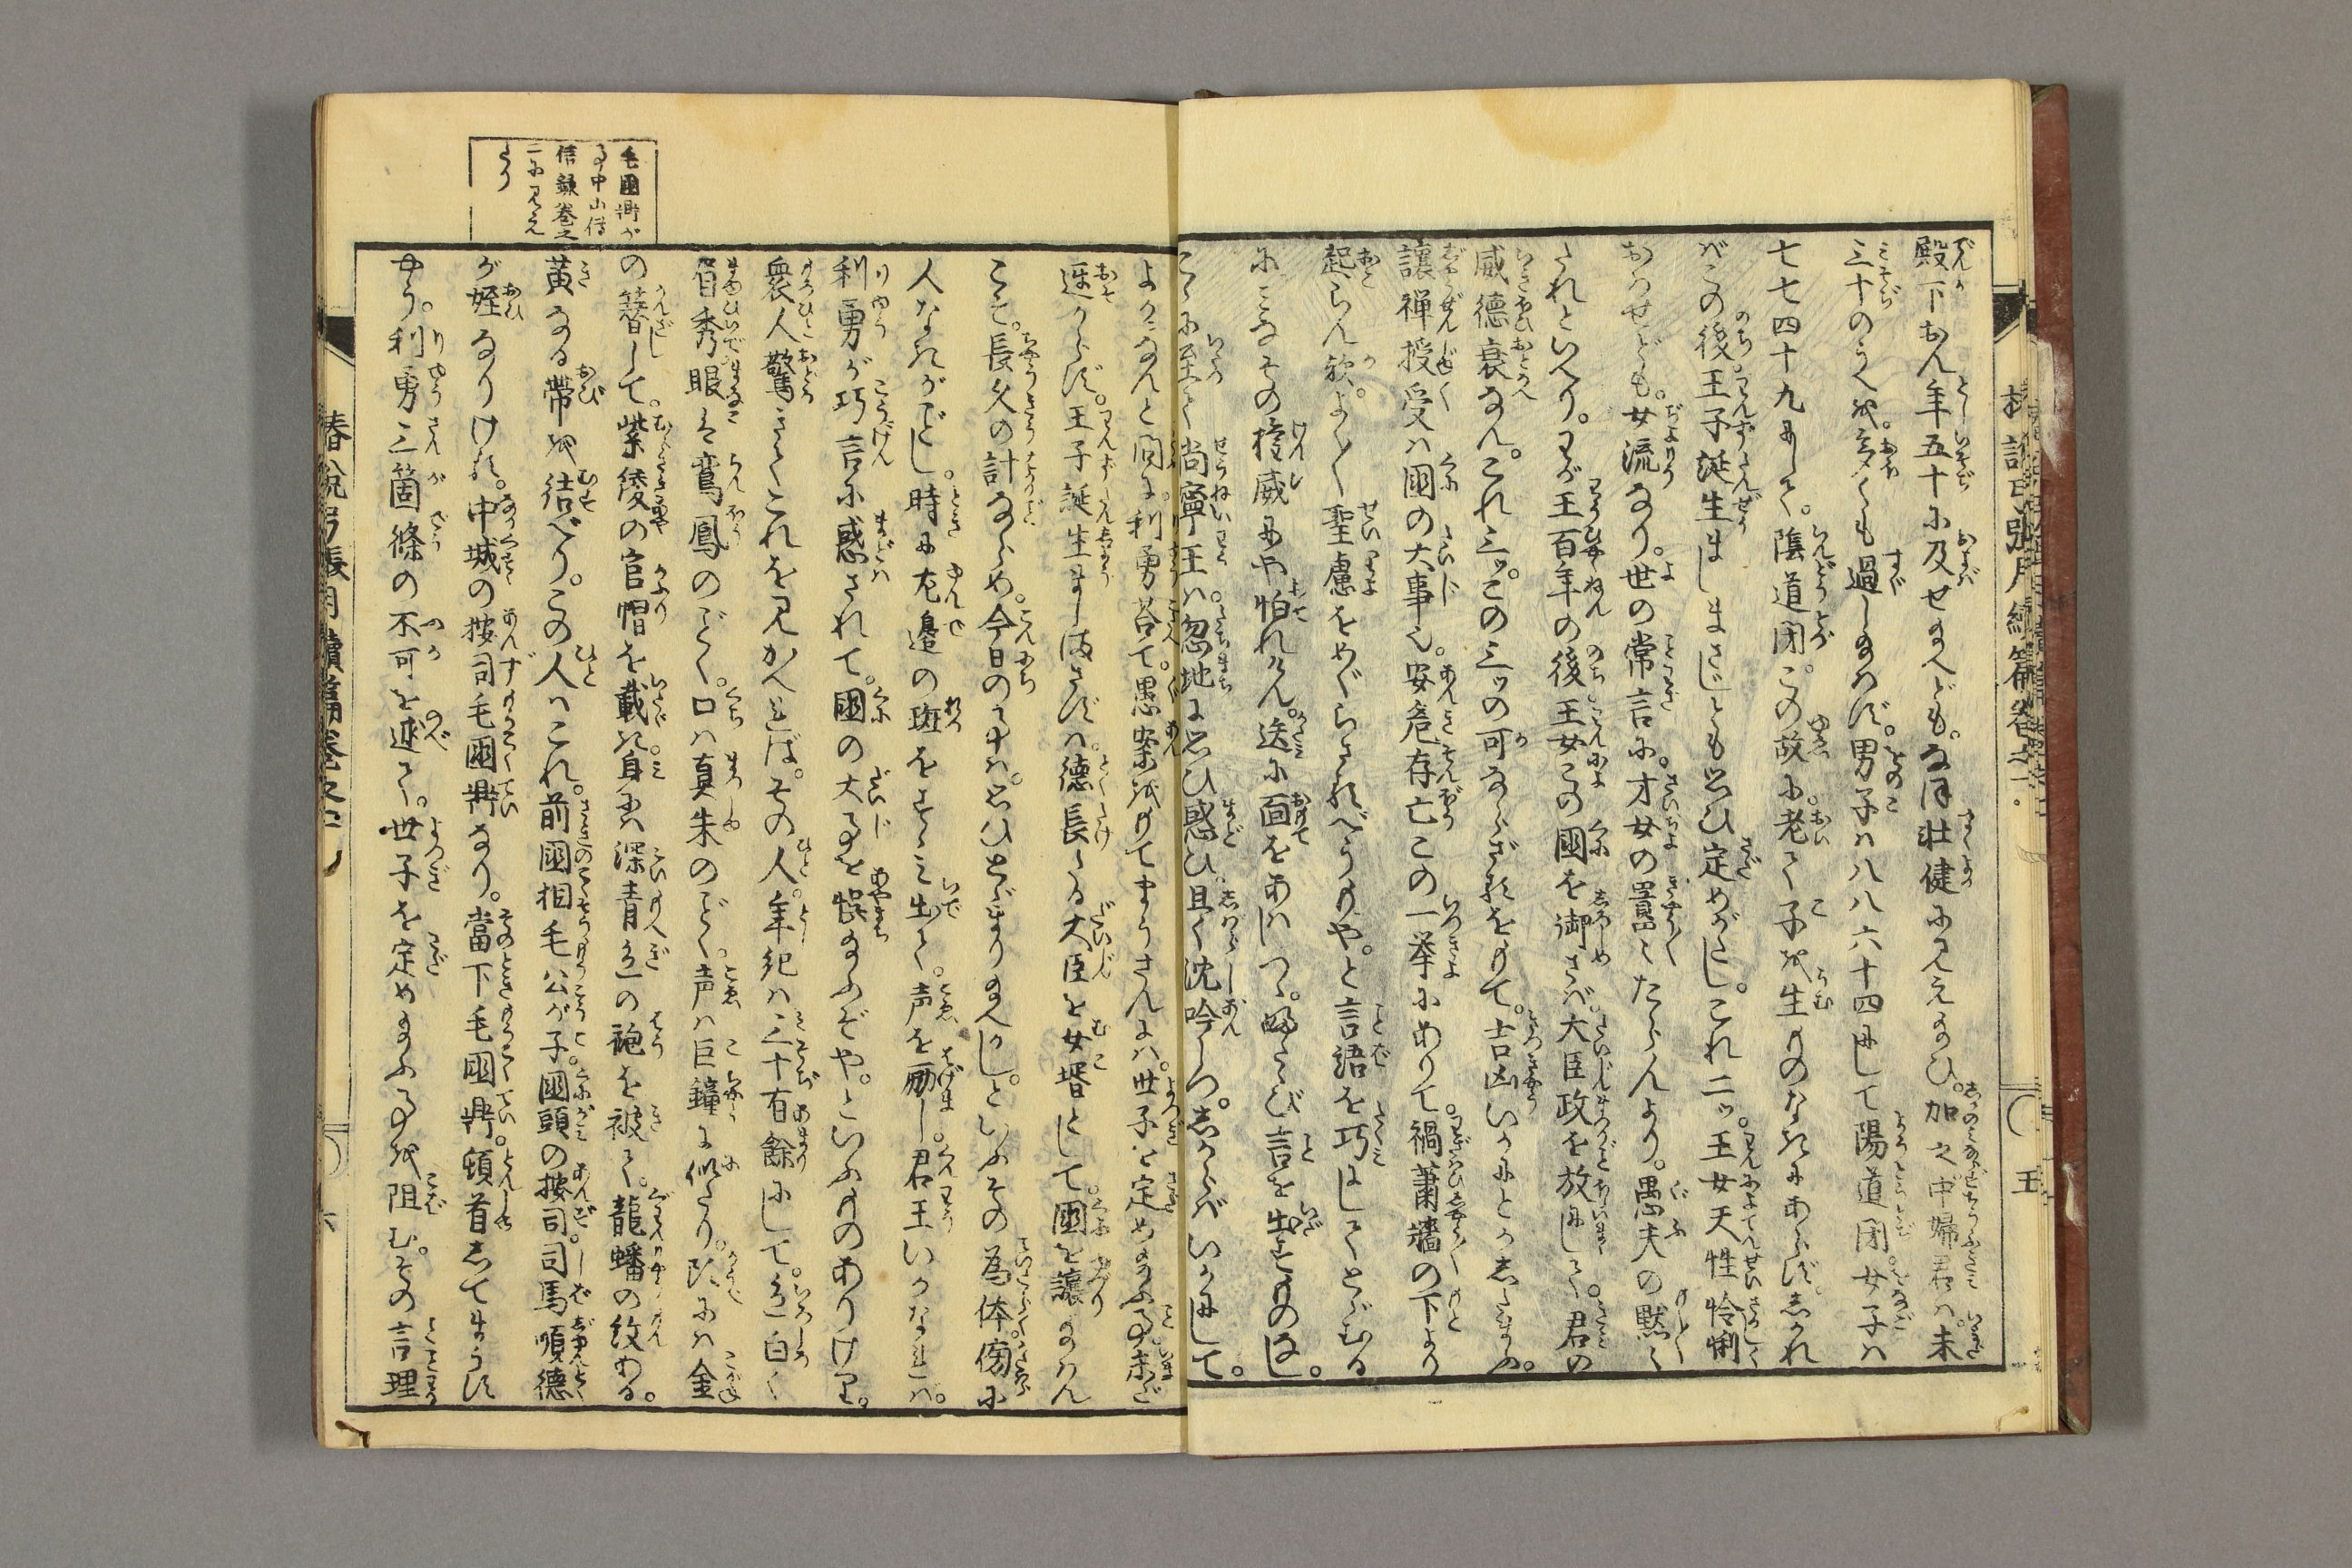 殿下おん年五十に及せ給へども。なほ壮健に見え給ひ。加之中婦君は。未
三十のうへを。多くも過し給はず。男子は八八六十四にして陽道閉。女子は
七七四十九にして。陰道閉。この故に。老て子を生ものなきにあらず。しかれ
ばこの後。王子誕生ましまさじとも思ひ定めがたし。これ二ッ。王女天性怜悧
おはせども。女流なり。世の常言に。才女の囂〻たらんより。愚夫の黙〻
たれといへり。わが王百年の後。王女この國を御さば。大臣政を放にして。君の
威徳衰なん。これ三ッ。この三ッの可ならざるをもて。吉凶いかにとかしたまふ。
讓禅授受は國の大事也。安危存亡この一挙にありて。禍蕭墻の下より
起らん歟。よく〳〵聖慮をめぐらさるべうもや。と言語を巧にしてとゞむる
にみなその権威にや怕れけん。迭に面をあはしつゝ。再たび言を出すものなし。
こゝに至て尚寧王は。忽地に思ひ惑ひ。且く沈吟しつ。しからばいかにして。
よからなんと問に。利勇荅て。愚案をもてまうさんには。世子を定め給ふ事未だ
遅からず。王子誕生ましまさずは。徳長たる大臣を女壻として。國を讓給はん
こそ。長久の計ならめ。今日の事は。思ひとゞまり給へかし。といふその為体傍に
人なきがごとし。時に左邊の班をすゝみ出て。声を勵し。君王いかなれば。
利勇が巧言に惑されて。國の大事を悞給ふぞや。といふものありけり。
衆人驚きてこれを見かへれば。その人。年紀は三十有餘にして。色白く
眉秀眼は鸞鳳のごとく。口は真朱のごとく。声は巨鐘に似たり。頭には金
の簪して。紫綾の官帽を載き。身には深青色の袍を被て。龍蟠の紋ある。
黄なる帶を結べり。この人はこれ。前國相毛公が子。國頭の按司司馬順徳
が姪なりける。中城の按司毛國鼎なり。當下毛國鼎。頓首してまうす
やう。利勇三箇條の不可を述て。世子を定め給ふ事を阻む。その言理
毛國鼎が
事中山傳
信録巻之
二に見え
たり
椿説弓張月續篇巻之一
五
椿説弓張月續篇巻之一
六